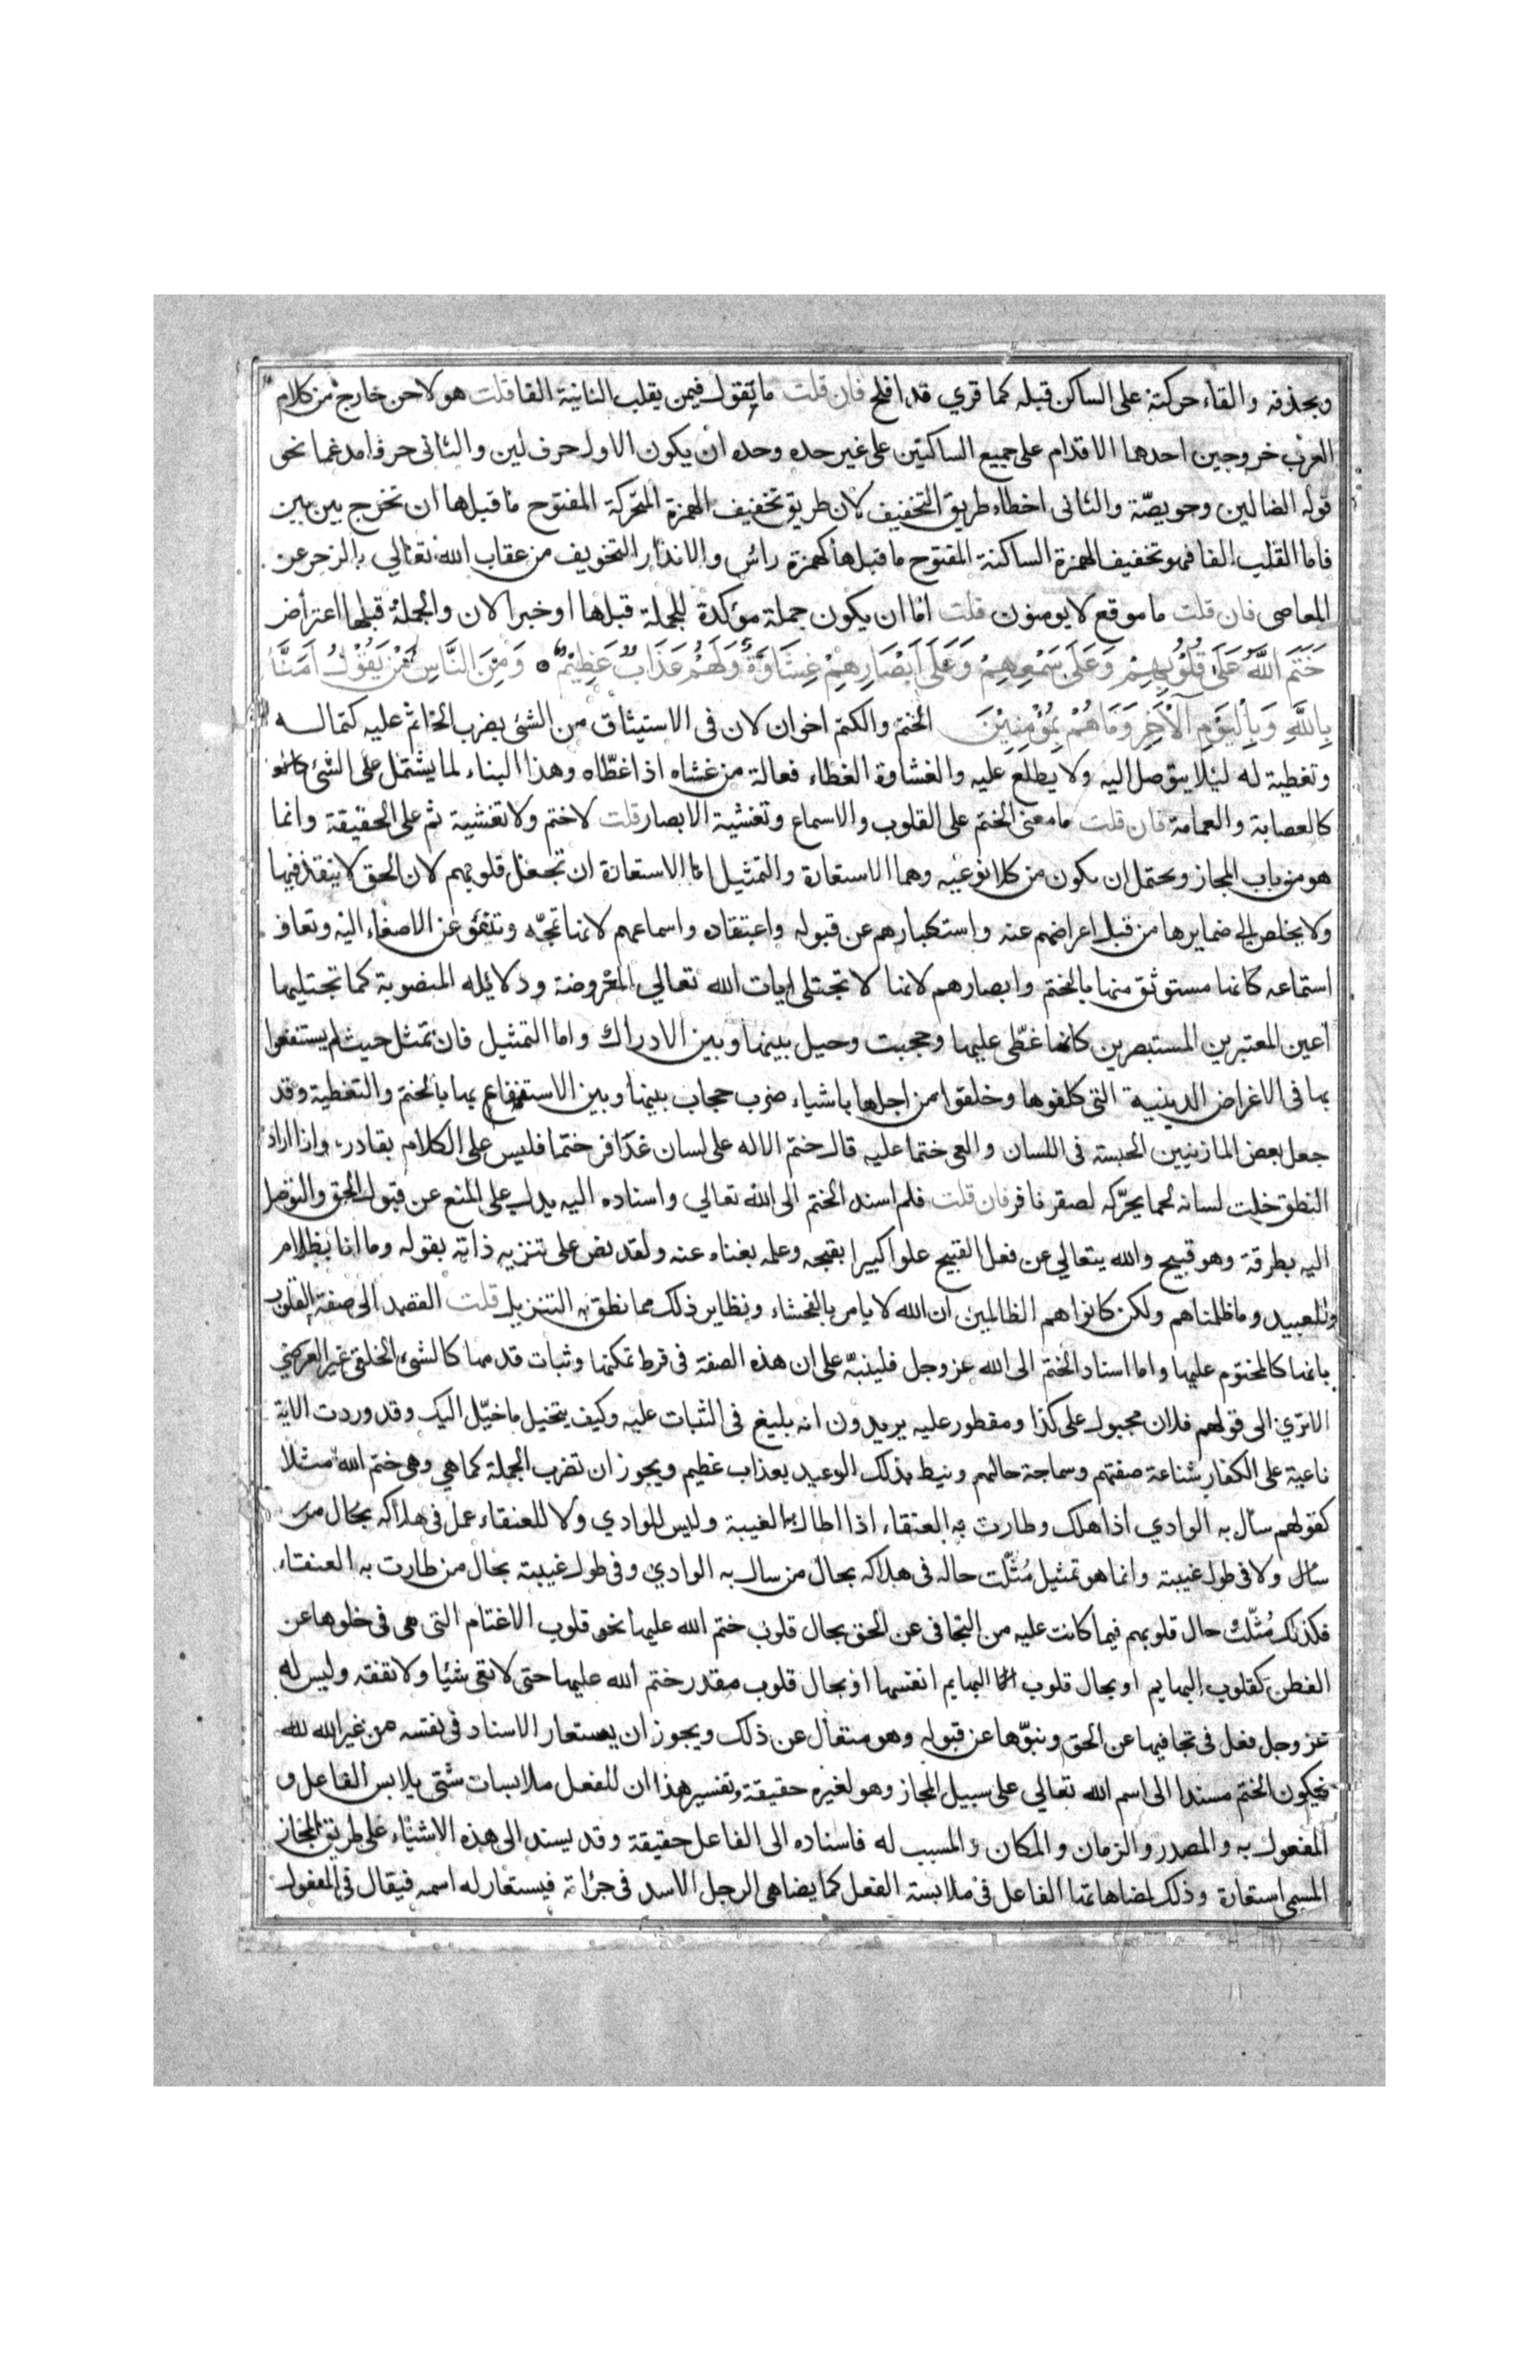 وبحذفه والقاء حركته على الساكن قبله كما قري قد افلح فان قلت ما تقول فيمن يقلب الثانية الفا قلت هو لاحن خارج من كلام
العرب خروجين احدهما الاقدام على جميع الساكنين على غير حده وحده ان يكون الاول حرف لين والثانى حرفا مدغما نحو
قوله الضالين وخويصّة والثانى اخطاء طريق التخفيف لان طريق تخفيف الهمزة المتحركة المفتوح ما قبلها ان تخرج بين بين
فاما القلب الفا فهو تخفيف الهمزة الساكنة المفتوح ما قبلها كهمزة راس والانذار التخويف من عقاب الله تعالي بالزجر عن
المعاصى فان قلت ما موقع لا يومنون قلت اما ان يكون جملة مؤكدة للجملة قبلها او خبرا لان والجملة قبلها اعتراض
خَتَمَ اللَّهُ عَلَى قُلُوْبِهِمْ وَعَلَى سَمْعِهِمْ وَعَلَى اَبْصَارِهِمْ غِشَاوَةٌ وَلَهُمْ عَذَابٌ عَظِيْمٌ وَمِنَ النَّاسِ مَنْ يَقُوْلُ اٰمَنَّا
بِاللَّهِ وَبِاْليَوْمِ اْلآخِرِ وَمَا هُمْ بِمُؤْمِنِيْنَ الختم والكتم اخوان لان فى الاستيثاق من الشئ بضرب الخاتم عليه كتما له
وتغطية له لئلا يتوصل اليه ولا يطلع عليه والغشاوة الغطاء فعالة من غشاه اذا غطّاه وهذا البناء لما يشتمل على الشئ
كالعصابة والعمامة فان قلت ما معنى الختم على القلوب والاسماع وتغشية الابصار قلت لا ختم ولا تغشية ثم على الحقيقة وانما
هو من باب المجاز ويحتمل ان يكون من كلا نوعيه وهما الاستعارة والتمثيل اما الاستعارة ان تجعل قلوبهم لان الحق لا ينفذ فيها
ولا يخلص الى ضمايرها من قبل اعراضهم عنه واستكبارهم عن قبوله واعتقاده واسماعهم لانها تمجّه وتنبؤ عن الاصغاء اليه وتعاف
استماعه كانها مستوثق منها بالختم وابصارهم لانها لا تجتلى ايات الله تعالي المعروضة ودلائله المنصوبة كما تجتليها
اعين المعتبرين المستبصرين كانما غطّى عليها وحجبت وحيل بينها وبين الادراك واما التمثيل فان تمثل حيث لم يستنفعوا
بها فى الاغراض الدينية التى كلفوها وخلقوا من اجلها باشياء ضرب حجاب بينها وبين الاستنفاع بها بالختم والتغطية وقد
جعل بعض المازنيين الحبسة فى اللسان والعى ختما عليه قال ختم الاله على لسان عذافر ختما فليس على الكلام بقادر واذا اراد
النطق خلت لسانه لحما يحرّكه لصقر نافر فان قلت فلم اسند الختم الى الله تعالي واسناده اليه يدل على المنع من قبول الحق والتوصل
اليه بطرقة وهو قبيح والله يتعالي عن فعل القبيح علوا كبيرا بقبحه وعلمه بغناه عنه ولقد نص على تنزيه ذاته بقوله وما انا بظلام
للعبيد وما ظلمناهم ولكن كانوا هم الظالمين ان الله لا يامر بالفحشاء ونظاير ذلك مما نطق به التنزيل قلت القصد الى صفة القلوب
بانها كالمختوم عليها واما اسناد الختم الى الله عز وجل فلينبّه على ان هذه الصفة فى فرط تمكنها وثبات قدمها كالشئ الخلقى غير العرضي
الا تري الى قولهم فلان مجبول على كذا ومفطور عليه يريدون انه بليغ فى الثبات عليه وكيف يتخيل ما خيّل اليك وقد وردت الاية
ناعية على الكفار شناعة صفتهم وسماجة حالهم ونيط بذلك الوعيد بعذاب عظيم ويجوز ان تضرب الجملة كما هي وهى ختم الله مثلا
كقولهم سأل به الوادي اذا هلك وطارت به العنقاء اذا اطال الغيبة وليس للوادي ولا للعنقاء عمل فى هلاكه بحال من
سأل ولا فى طول غيبته وانما هو تمثيل مُثّلت حاله فى هلاكه بحال من سال به الوادي وفى طول غيبته بحال من طارت به العنقاء
فكذلك مُثّلت حال قلوبهم فيما كانت عليه من التجافى عن الحق بحال قلوب ختم الله عليها نحو قلوب الاغتام التى هى فى خلوها عن
الفطن كقلوب البهايم او بحال قلوب البهايم انفسها او بحال قلوب مقدر ختم الله عليها حتى لا تعى شيئا ولا تفقه وليس له
عز وجل فعل فى تجافيها عن الحق ونبوّها عن قبوله وهو متعال عن ذلك ويجوز ان يستعار الاسناد فى نفسه من غير الله لله
فيكون الختم مسندا الى اسم الله تعالي على سبيل المجاز وهو لغيره حقيقة وتفسير هذا ان للفعل ملابسات شتى يلابس الفاعل و
المفعول به والمصدر والزمان والمكان والمسبب له فاسناده الى الفاعل حقيقة وقد يسند الى هذه الاشياء على طريق المجاز
المسمى استعارة وذلك لمضاهاتها الفاعل فى ملابسة الفعل كما يضاهى الرجل الاسد فى جراته فيستعار له اسمه فيقال فى المفعول